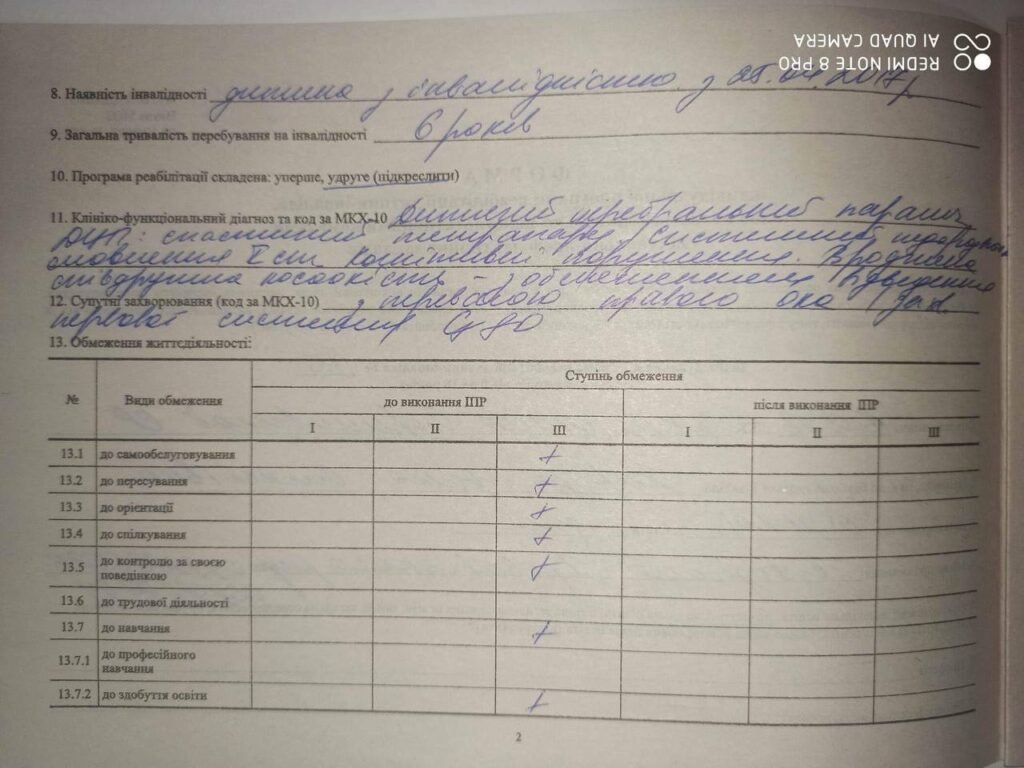 REDMI NOTE 8 PRO
AI QUAD CAMERA
8. Наявність інвалідності дитина з інвалідністю з 25.04.2017р
9. Загальна тривалість перебування на інвалідності 6 років
10. Програма реабілітації складена: уперше, удруге (підкреслити)
11. Клініко-функціональний діагноз та код за МКХ-10 Дитячий церебральний параліч
ДЦП: спастичний тетрапарез Системний
мовлення ІІ ст Когнітивні порушення. Вроджена
косоокість з обмеженням відведення
12. Супутні захворювання (код за МКХ-10) з перевагою правого ока
нервової системи
13. Обмеження життєдіяльності:
№ Види обмеження Ступінь обмеження
до виконання ІПР після виконання ІПР
I II III I II III
13.1 до самообслуговування +
13.2 до пересування +
13.3 до орієнтації +
13.4 до спілкування +
13.5 до контролю за своєю
поведінкою +
13.6 до трудової діяльності
13.7 до навчання +
13.7.1 до професійного
навчання
13.7.2 до здобуття освіти +
2